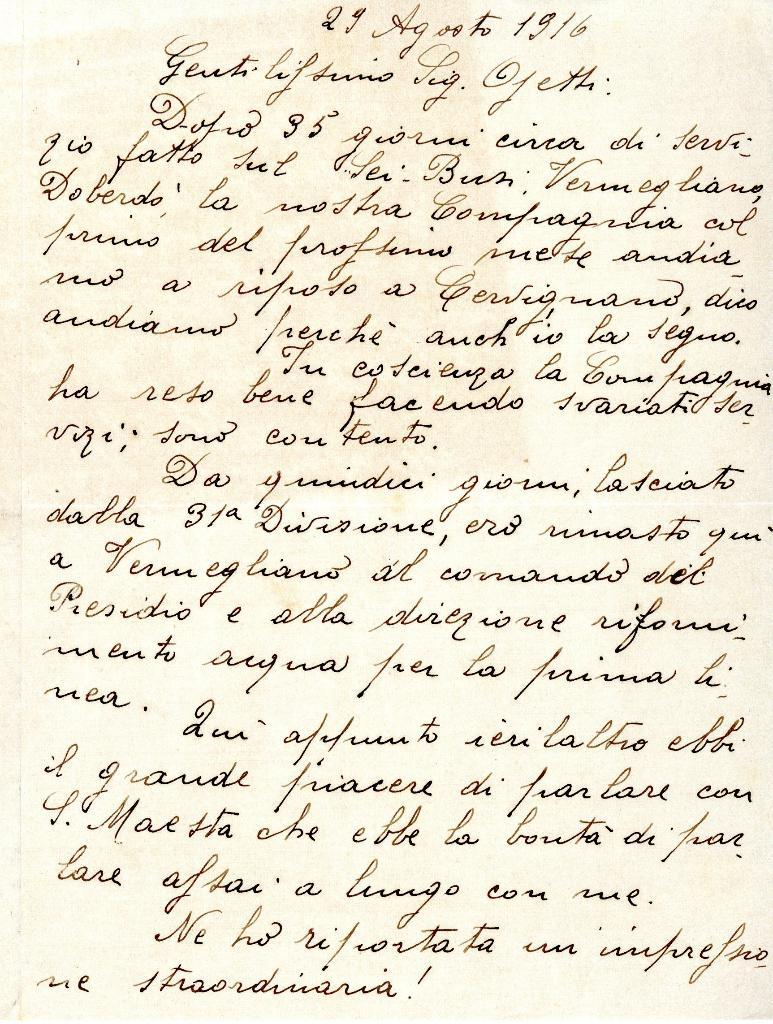 29 Agosto 1916
Gentilissimo Sig. Ojetti:
Dopo 35 giorni circa di servi-
zio fatto sul Sei-Busi, Vermegliano,
Doberdó, la nostra Compagnia col
primo del prossimo mese andia-
mo a riposo a Cervignano, dico
andiamo perchè anch'io la seguo.
In coscienza la Compagnia
ha reso bene facendo svariati ser-
vizi; sono contento.
Da quindici giorni, lasciato
dalla 31a Divisione, ero rimasto quì
a Vermegliano al comando del
Presidio e alla direzione riforni-
mento acqua per la prima li-
nea.
Quì appunto ierilaltro ebbi
il grande piacere di parlare con
S. Maestà che ebbe la bontà di par-
lare assai a lungo con me.
Ne ho riportata un'impressio-
ne straordinaria!